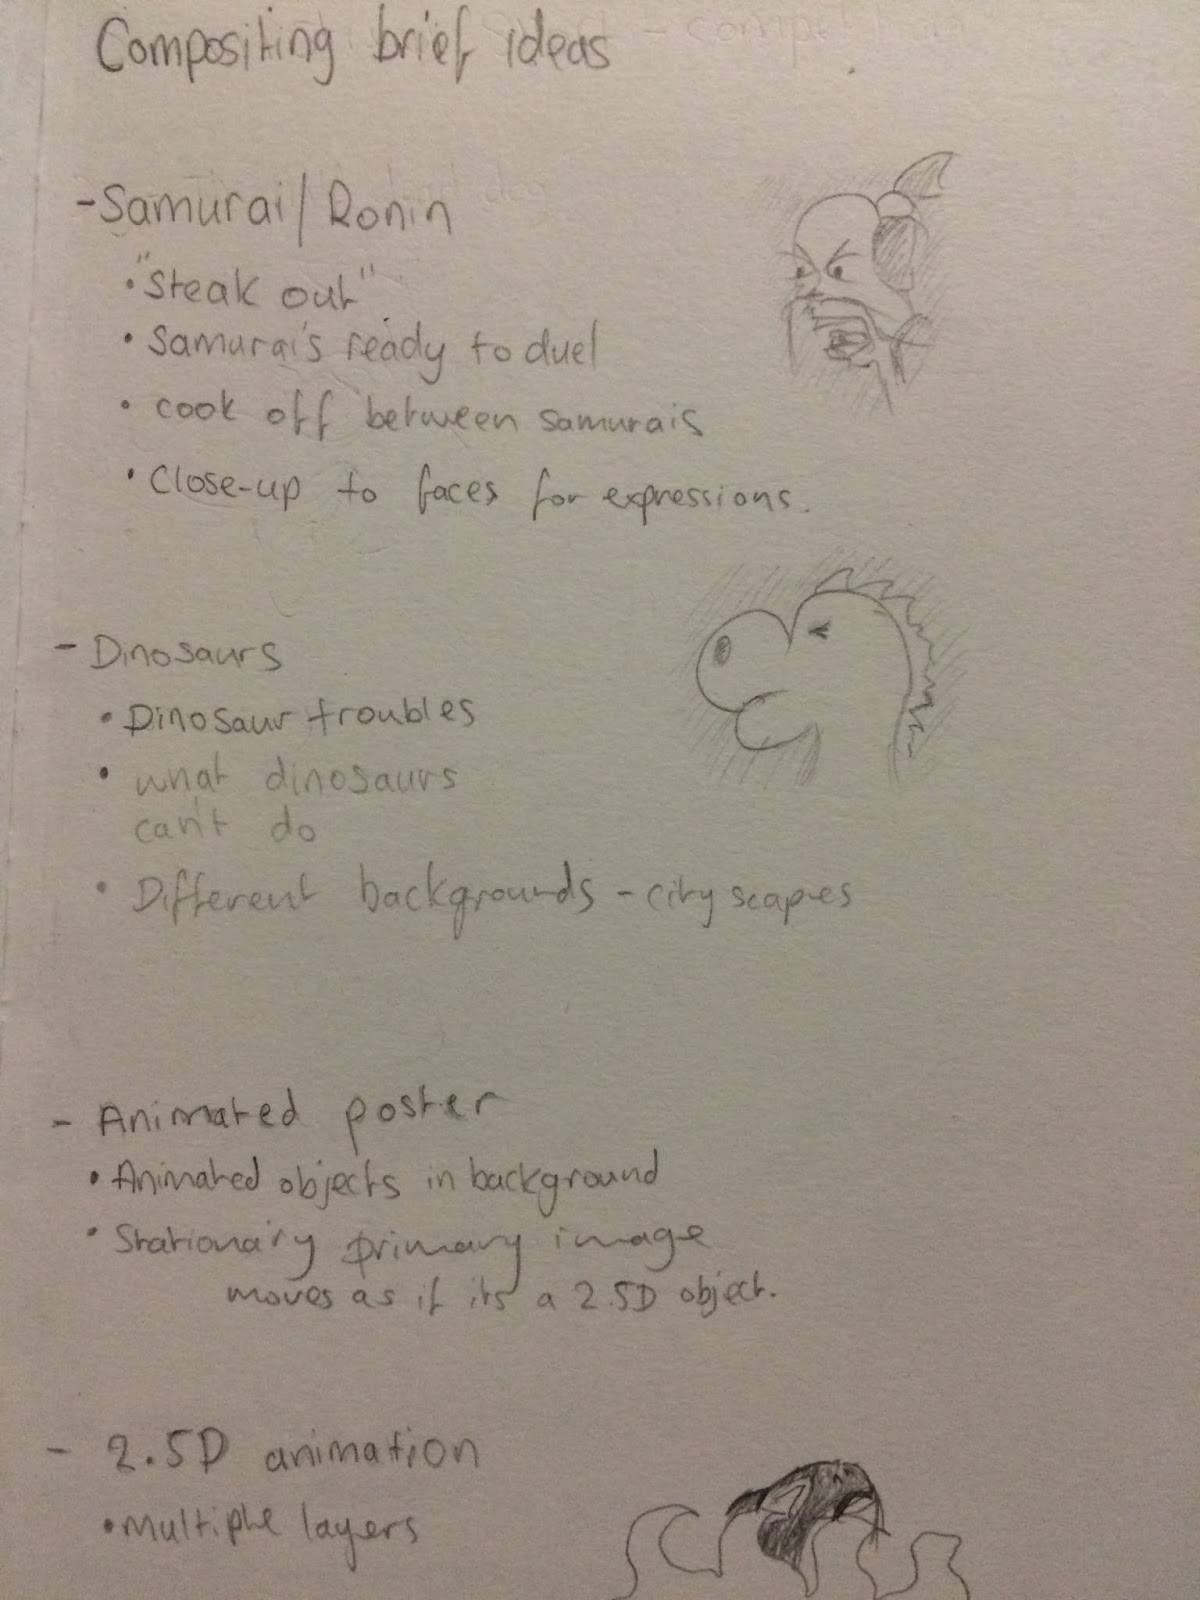 Compositing brief ideas
- Samurai/Ronin
• "Steak out"
• Samurai's ready to duel
• cook off between samurais
• Close-up to faces for expressions.
- Dinosaurs
• Dinosaur troubles
• what dinosaurs
can't do
• Different backgrounds - city scapes
- Animated poster
• Animated objects in background
• Stationary primary image
moves as if its a 2.5D object.
- 2.5D animation
• multiple layers